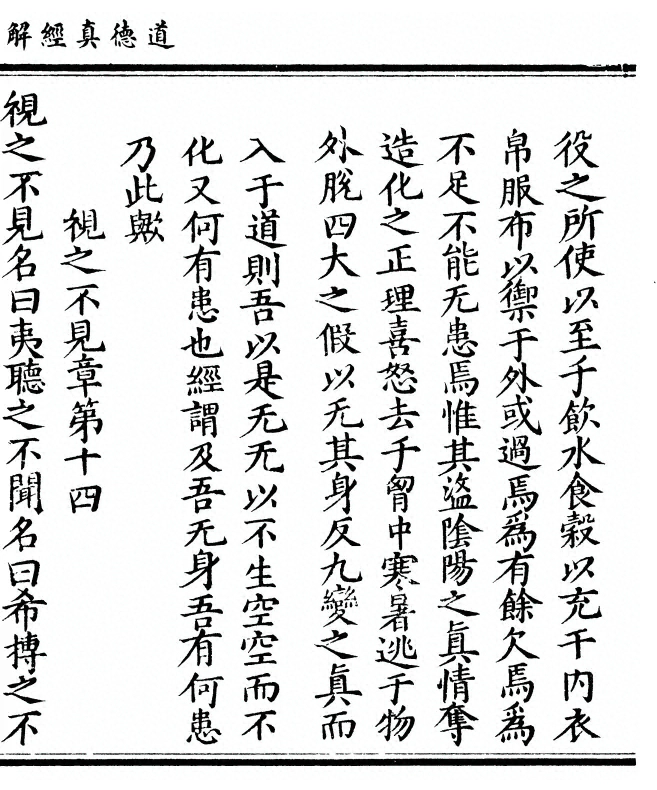 道德真經解
役之所使以至于飲水食穀以充于內衣
帛服布以禦于外或過焉爲有餘欠焉爲
不足不能无患焉惟其盜陰陽之真情奪
造化之正理喜怒去于胷中寒暑逃于物
外脫四大之假以无其身反九變之真而
入于道則吾以是无无以不生空空而不
化又何有患也經謂及吾无身吾有何患
乃此歟
視之不見章第十四
視之不見名曰夷聽之不聞名曰希搏之不